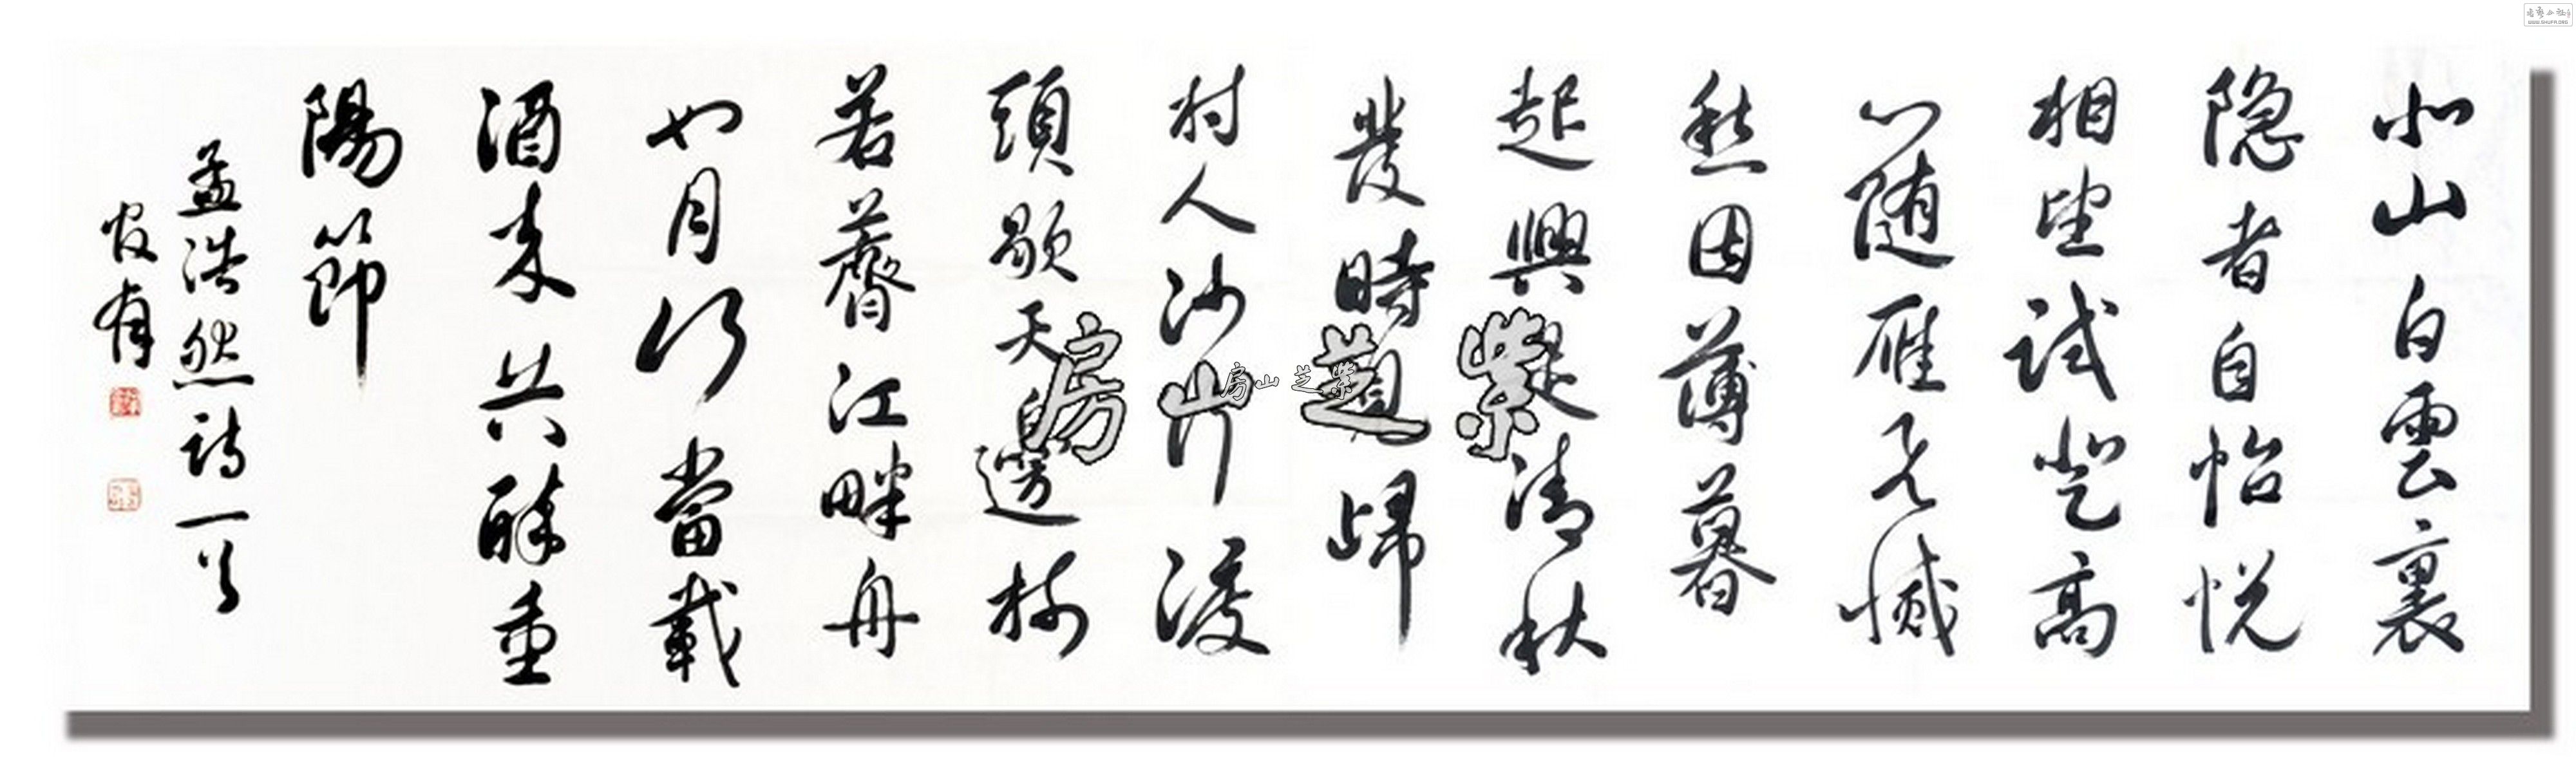 北山白雲裏
隐者自怡悦
相望試登高
心随雁飛滅
愁因薄暮
起興是清秋
發時見歸
村人沙行渡
頭歇天邊樹
若薺江畔舟
如月何當載
酒来共醉重
陽節
孟浩然詩一首
紫芝山房
房山芝紫